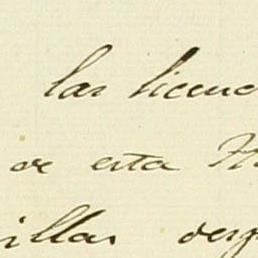 las licenc
de esta H
illas des